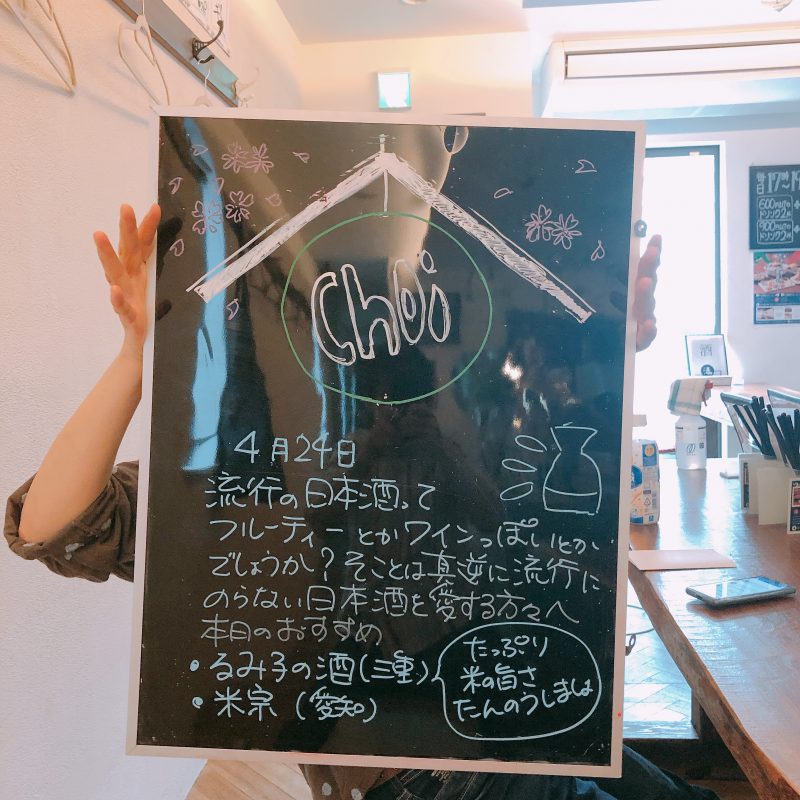 Choi
4月24日
流行の日本酒って
フルーティーとかワインっぽいとか
でしょうか?そことは真逆に流行に
のらない日本酒を愛する方々へ
本日のおすすめ
・るみ子の酒(三重)
・米宗(愛知)
たっぷり
米の旨さ
たんのうしましょ
毎日17時〜19
600
ドリンク2
900
ドリンク2